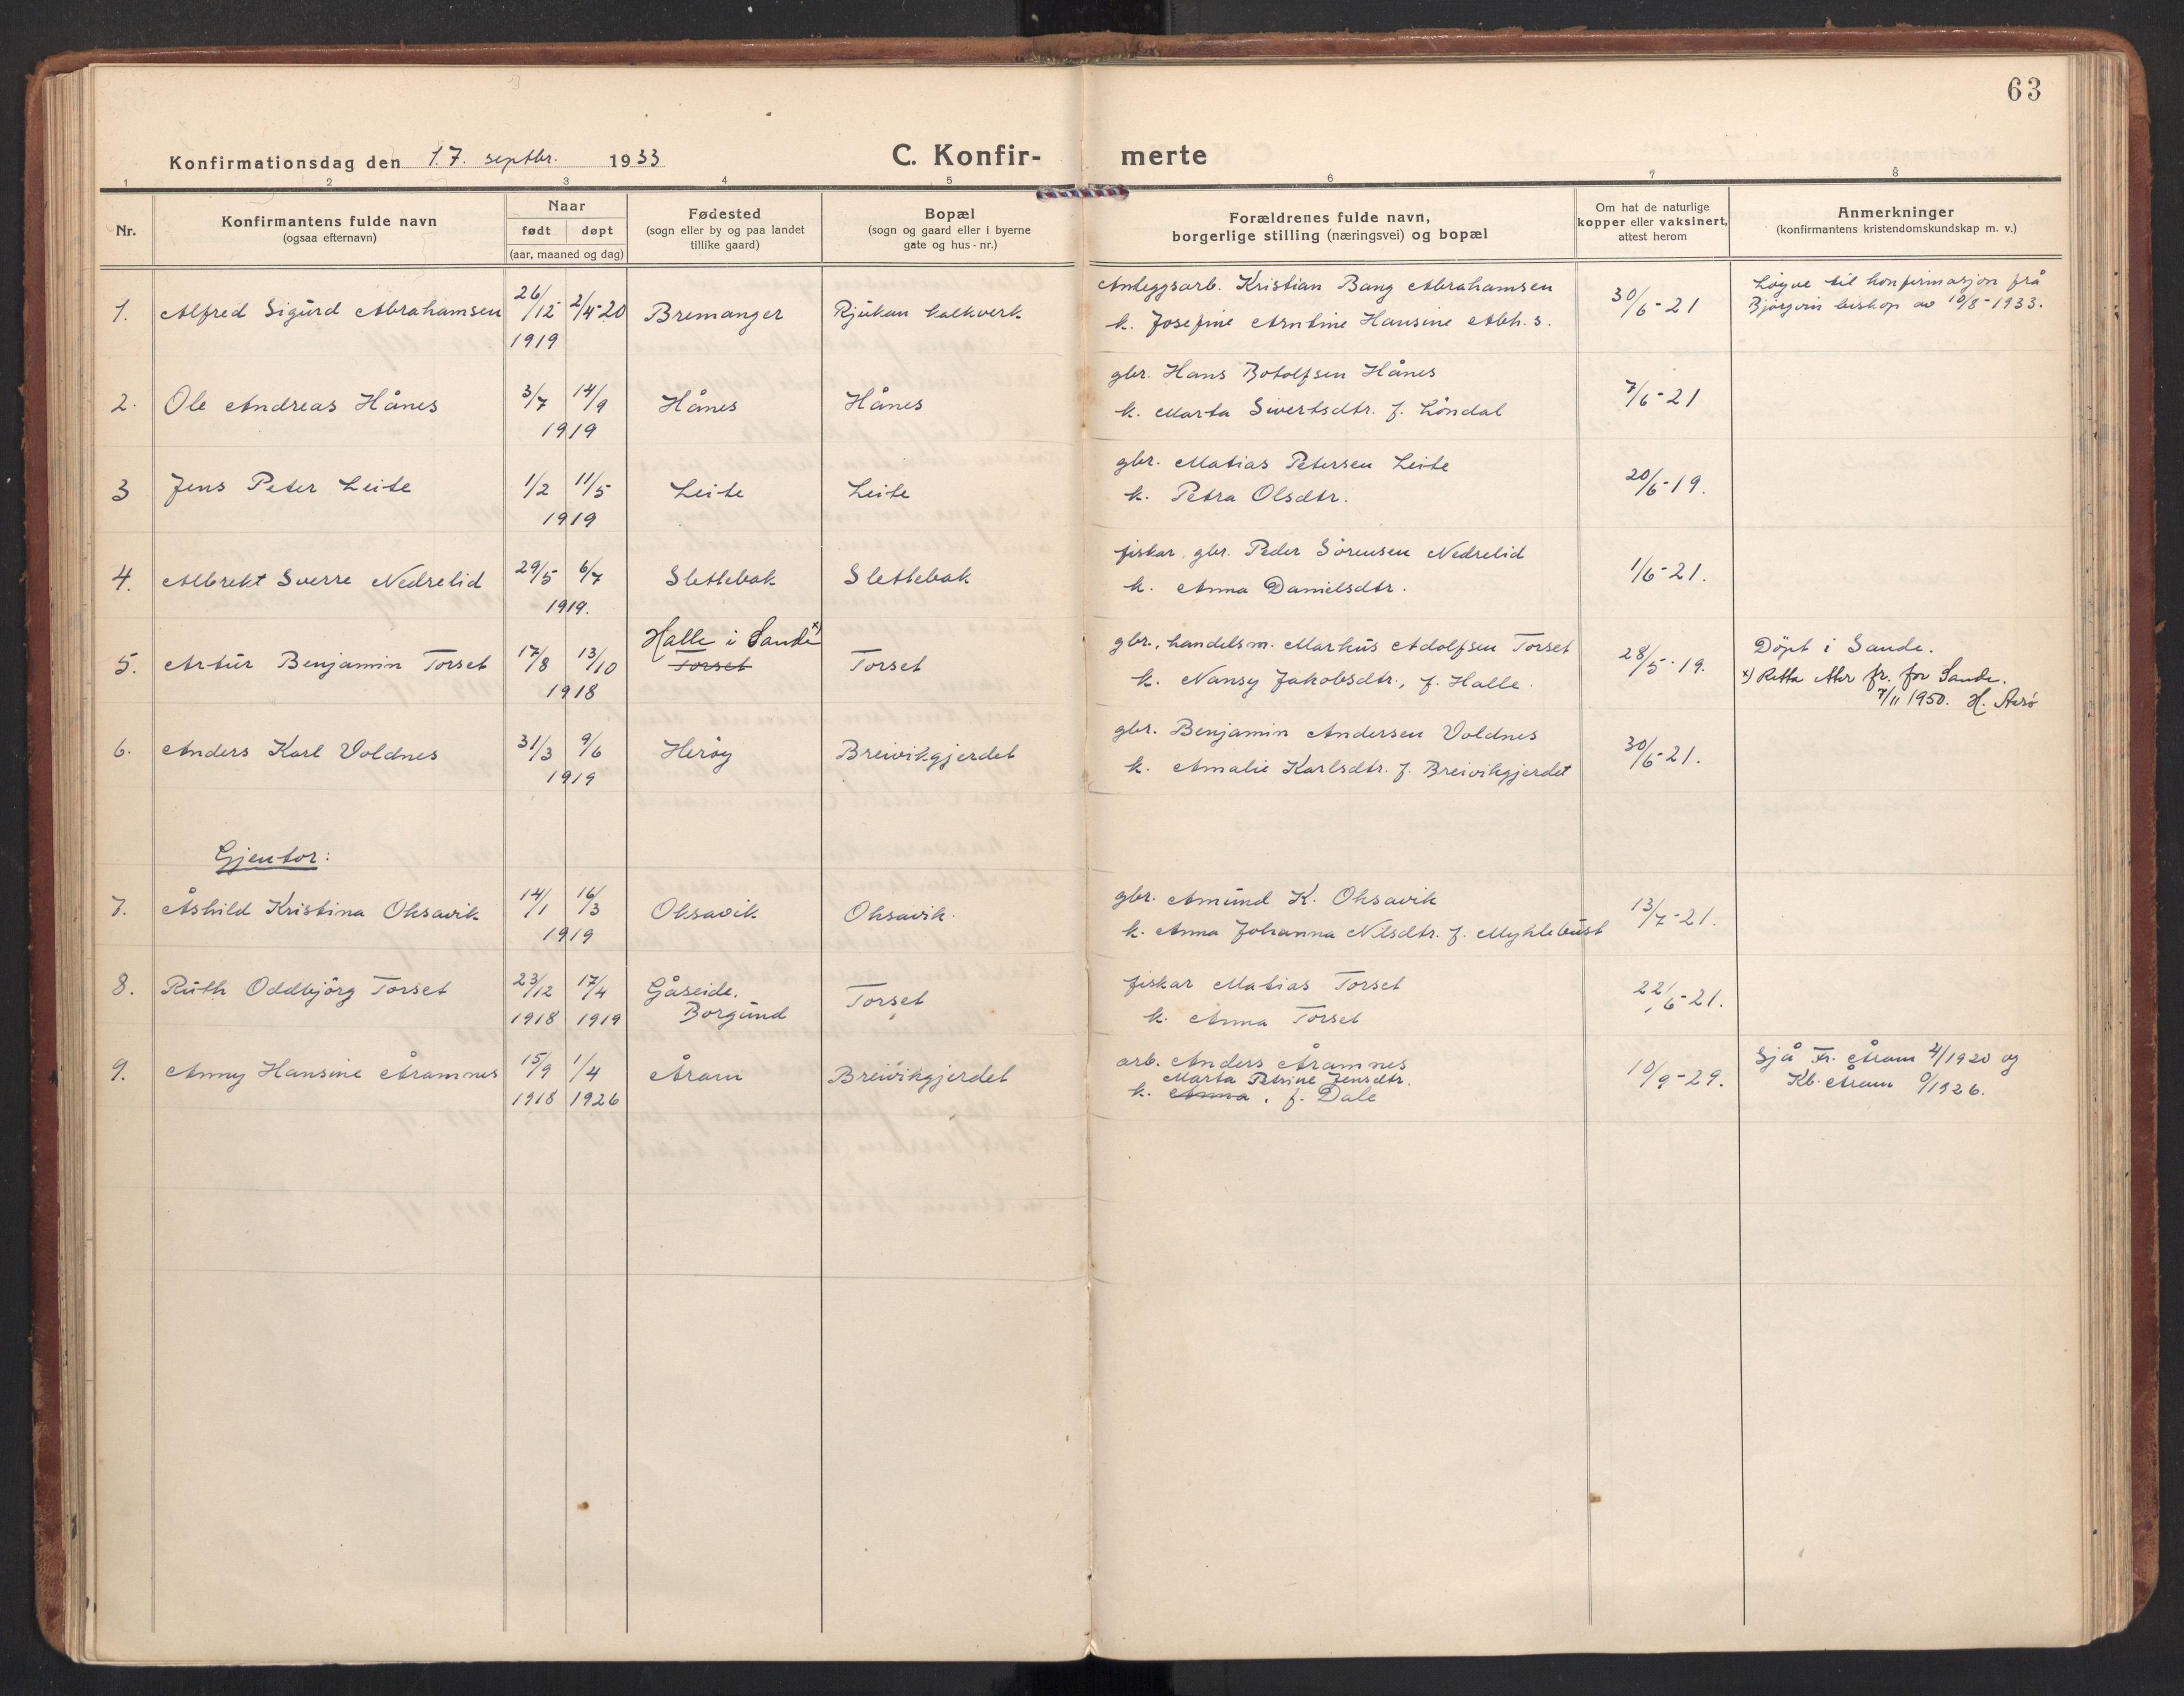 63
Konfirmationsdag den 17. septbr. 1933
C. Konfir- merte
1 2 3 4 5 6 7 8
Nr.
Konfirmantens fulde navn
(ogsaa efternavn)
Naar
født døpt
(aar, maaned og dag)
Fødested
(sogn eller by og paa landet
tillike gaard)
Bopæl
(sogn og gaard eller i byerne
gate og hus-nr.)
Forældrenes fulde navn,
borgerlige stilling (næringsvei) og bopæl
Om hat de naturlige
kopper eller vaksinert,
attest herom
Anmerkninger
(konfirmantens kristendomskundskap m. v.)
1. Alfred Sigurd Abrahamsen 26/12 1919 2/4-20 Bremanger Rjukan kalkverk
Anleggsarb. Kristian Bang Abrahamsen
k. Josefine Arntine Hansine Abh. s.
30/6-21
Løyve til konfirmasjon frå
Bjørgvin biskop av 10/8-1933.
2. Ole Andreas Hånes 3/7 14/9 1919 Hånes Hånes
gbr. Hans Botolfsen Hånes
k. Marta Sivertsdtr. f. Løndal
7/6-21
3 Jens Peter Leite 1/2 11/5 1919 Leite Leite
gbr. Matias Petersen Leite
k. Petra Olsdtr.
20/6-19.
4. Albrekt Sverre Nedrelid 29/5 6/7 1919. Slettebak Slettebak
fiskar, gbr. Peder Sørensen Nedrelid
k. Anna Danielsdtr.
1/6-21.
5. Artur Benjamin Torset 17/8 13/10 1918
Halle i Sande x)
Torset
Torset
gbr., handelsm. Markus Adolfsen Torset
k. Nansy Jakobsdtr., f. Halle.
28/5-19.
Døpt i Sande.
x) Retta etter fr. for Sande.
7/11 1950. H. Aarø
6. Anders Karl Voldnes 31/3 9/6 1919 Herøy Breivikgjerdet
gbr. Benjamin Andersen Voldnes
k. Amalie Karlsdtr. f. Breivikgjerdet
30/6-21.
Gjentor:
7. Åshild Kristina Oksavik 14/1 16/3 1919 Oksavik Oksavik.
gbr. Amund K. Oksavik
k. Anna Johanna Nilsdtr. f. Myklebust
13/7-21.
8. Ruth Oddbjørg Torset 23/12 1918 17/4 1919
Gåseide,
Borgund
Torset
fiskar Matias Torset
k. Anna Torset
22/6-21.
9. Anny Hansine Åramnes 15/9 1918 1/4 1926 Åram Breivikgjerdet
arb. Anders Åramnes
Marta Petrine Jensdtr.
k. Anna, f. Dale
10/9-29.
Sjå Fr. Åram 4/1920 og
Kb. Åram 9/1926.